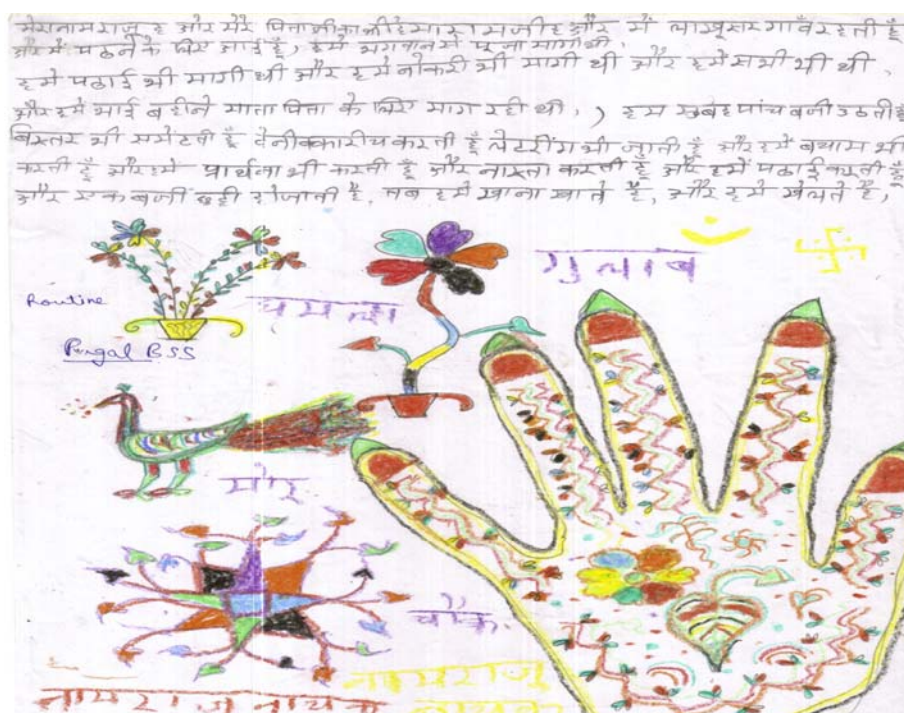 मेरा नाम राजू है और मेरे पिताजी का और में लाखूसर गाँव रहती हूँ
और में पढने के लिए आई हूँ, हमे भगवान से पूजा मागी थी,
हमे पढाई भी मागी थी और हमे नोकरी भी मागी थी और हमे सभी भी थी,
और हमे भाई बहीने माता पिता के लिए माग रही थी, ) हम सुबह पांच बजी उठती हूँ
बिस्तर भी समेटती हूँ करती हूँ लेटरींग भी जाती हूँ और हमे भी
करती हूँ और हमे प्रार्थना भी करती हूँ और नास्ता करती हूँ और हमे पढाई करती हूँ
और एक बजी छुटी होजाती है, तब हमे खाना खाते है, और हमे खेलते है,
गुलाब
Routine
Pungal BSS
मोर
चौक
नाम राजू नायक
नाम राजू
नायक